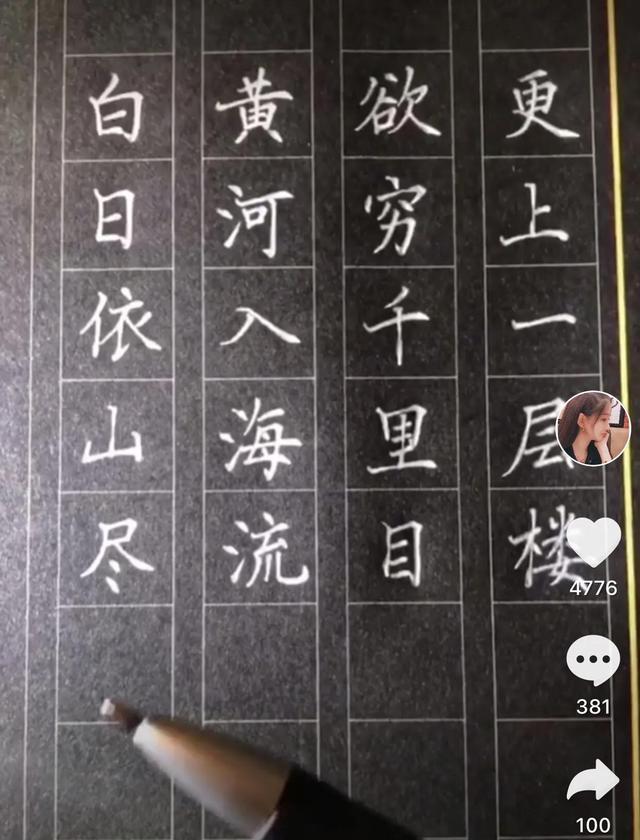 白日依山尽
黄河入海流
欲穷千里目
更上一层楼
4776
381
100